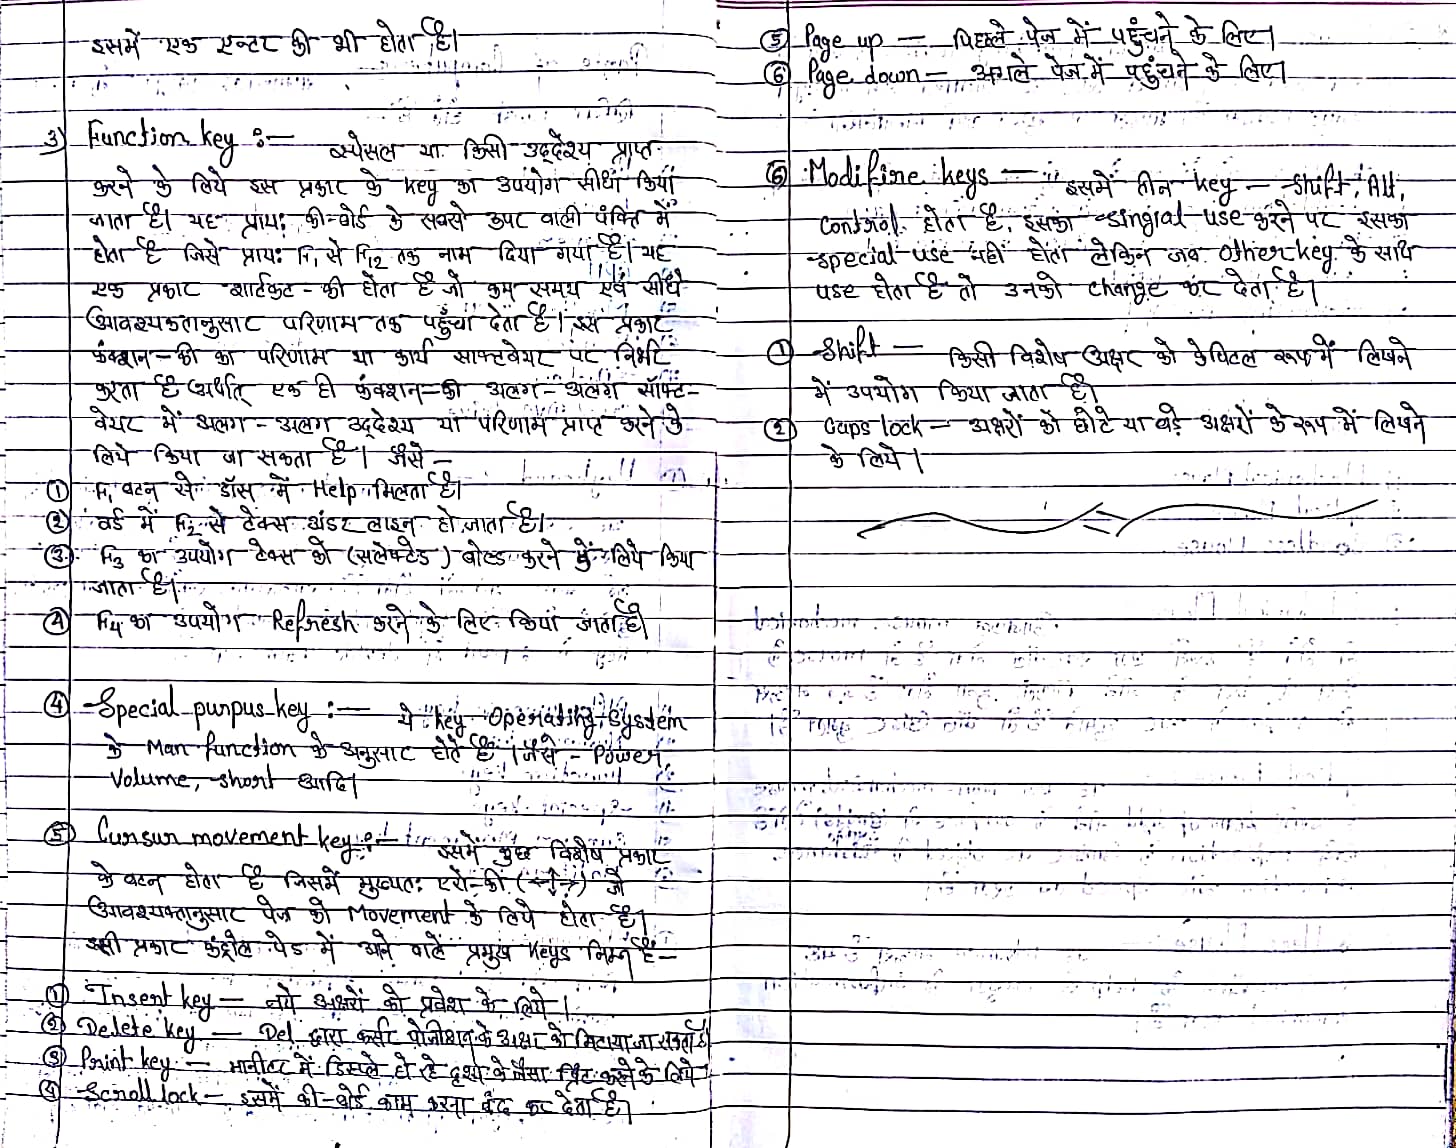 इसमें एक एन्टर की भी होता है।
3) Function key :— स्पेसल या किसी उद्देश्य प्राप्त
करने के लिये इस प्रकार के key का उपयोग सीधा किया
जाता है। यह प्रायः की-बोर्ड के सबसे उपर वाली पंक्ति में
होता है जिसे प्रायः F1 से F12 तक नाम दिया गया है। यह
एक प्रकार शार्टकट-की होता है जो कम समय एवं सीधे
आवश्यकतानुसार परिणाम तक पहुँचा देता है। इस प्रकार
फंक्शन-की का परिणाम या कार्य साफ्टवेयर पर निर्भर
करता है अर्थात् एक ही फंक्शन-की अलग-अलग सॉफ्ट-
वेयर में अलग-अलग उद्देश्य या परिणाम प्राप्त करने के
लिये किया जा सकता है। जैसे –
① F1 बटन से डॉस में Help मिलता है।
② वर्ड में F2 से टेक्स अंडर लाइन हो जाता है।
③ F3 का उपयोग टेक्स को (सलेक्टेड) बोल्ड करने के लिये किया
जाता है।
④ F4 का उपयोग Refresh करने के लिए किया जाता है।
④ Special purpus key :— ये key Operating System
के Man function के अनुसार होते है। जैसे – Power,
Volume, short आदि।
⑤ Cursur movement key :— इसमें कुछ विशेष प्रकार
के बटन होता है जिसमें मुख्यतः एरो-की (←↕→) जो
आवश्यक्तानुसार पेज को Movement के लिये होता है।
इसी प्रकार कंट्रोल पेड में आने वाले प्रमुख Keys निम्न है –
① Insert key – नये अक्षरों को प्रवेश के लिये।
② Delete key – Del द्वारा कर्सर पोजीशन के अक्षर को मिटाया जा सकता है
③ Print key – मानीटर में डिस्प्ले हो रहे दृश्य के जैसा प्रिंट करने के लिये
④ Scroll lock – इसमें की-बोर्ड काम करना बंद कर देता है।
⑤ Page up – पिछले पेज में पहुंचने के लिए।
⑥ Page down – अगले पेज में पहुंचने के लिए।
⑥ Modifire keys – इसमें तीन key – Shift, Alt,
Control होता है, इसका singial use करने पर इसका
special use नहीं होता लेकिन जब Other key के साथ
use होता है तो उनको change कर देता है।
① Shift – किसी विशेष अक्षर को केपिटल रूप में लिखने
में उपयोग किया जाता है।
② Caps lock – अक्षरों को छोटे या बड़े अक्षरों के रूप में लिखने
के लिये।